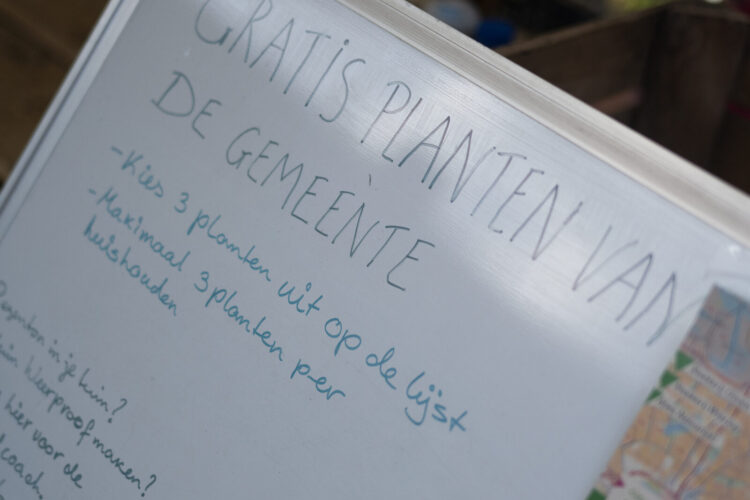 GRATIS PLANTEN VAN
DE GEMEENTE
- Kies 3 planten uit op de lijst
- Maximaal 3 planten per
huishouden
in je tuin?
Weerproof maken?
hier voor de
coach.